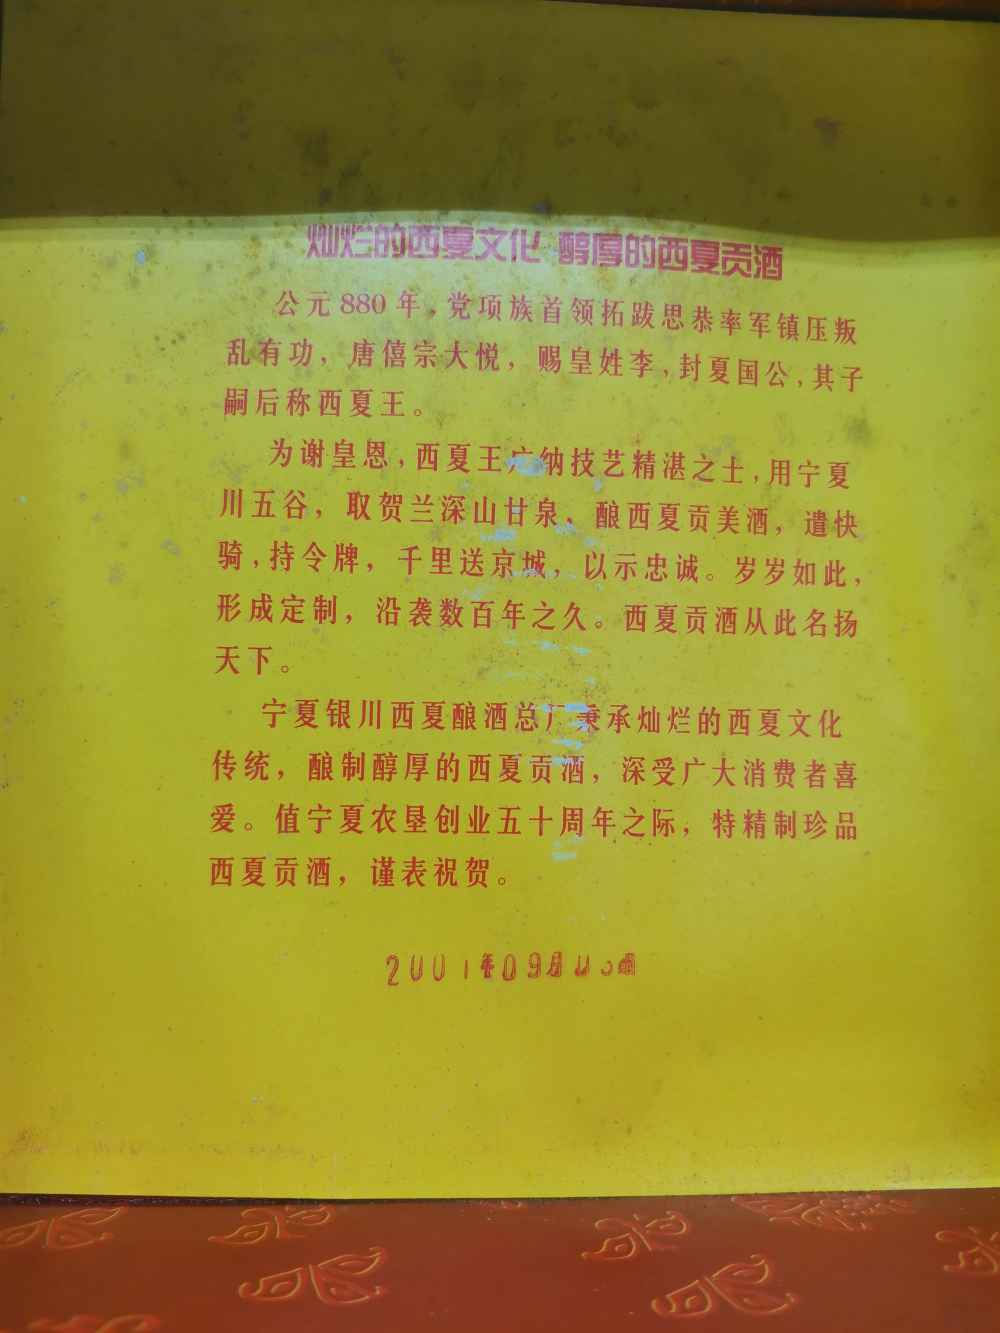 灿烂的西夏文化 醇厚的西夏贡酒
公元880年，党项族首领拓跋思恭率军镇压叛
乱有功，唐僖宗大悦，赐皇姓李，封夏国公，其子
嗣后称西夏王。
为谢皇恩，西夏王广纳技艺精湛之士，用宁夏
川五谷，取贺兰深山甘泉，酿西夏贡美酒，遣快
骑，持令牌，千里送京城，以示忠诚。岁岁如此，
形成定制，沿袭数百年之久。西夏贡酒从此名扬
天下。
宁夏银川西夏酿酒总厂秉承灿烂的西夏文化
传统，酿制醇厚的西夏贡酒，深受广大消费者喜
爱。值宁夏农垦创业五十周年之际，特精制珍品
西夏贡酒，谨表祝贺。
2001年09月